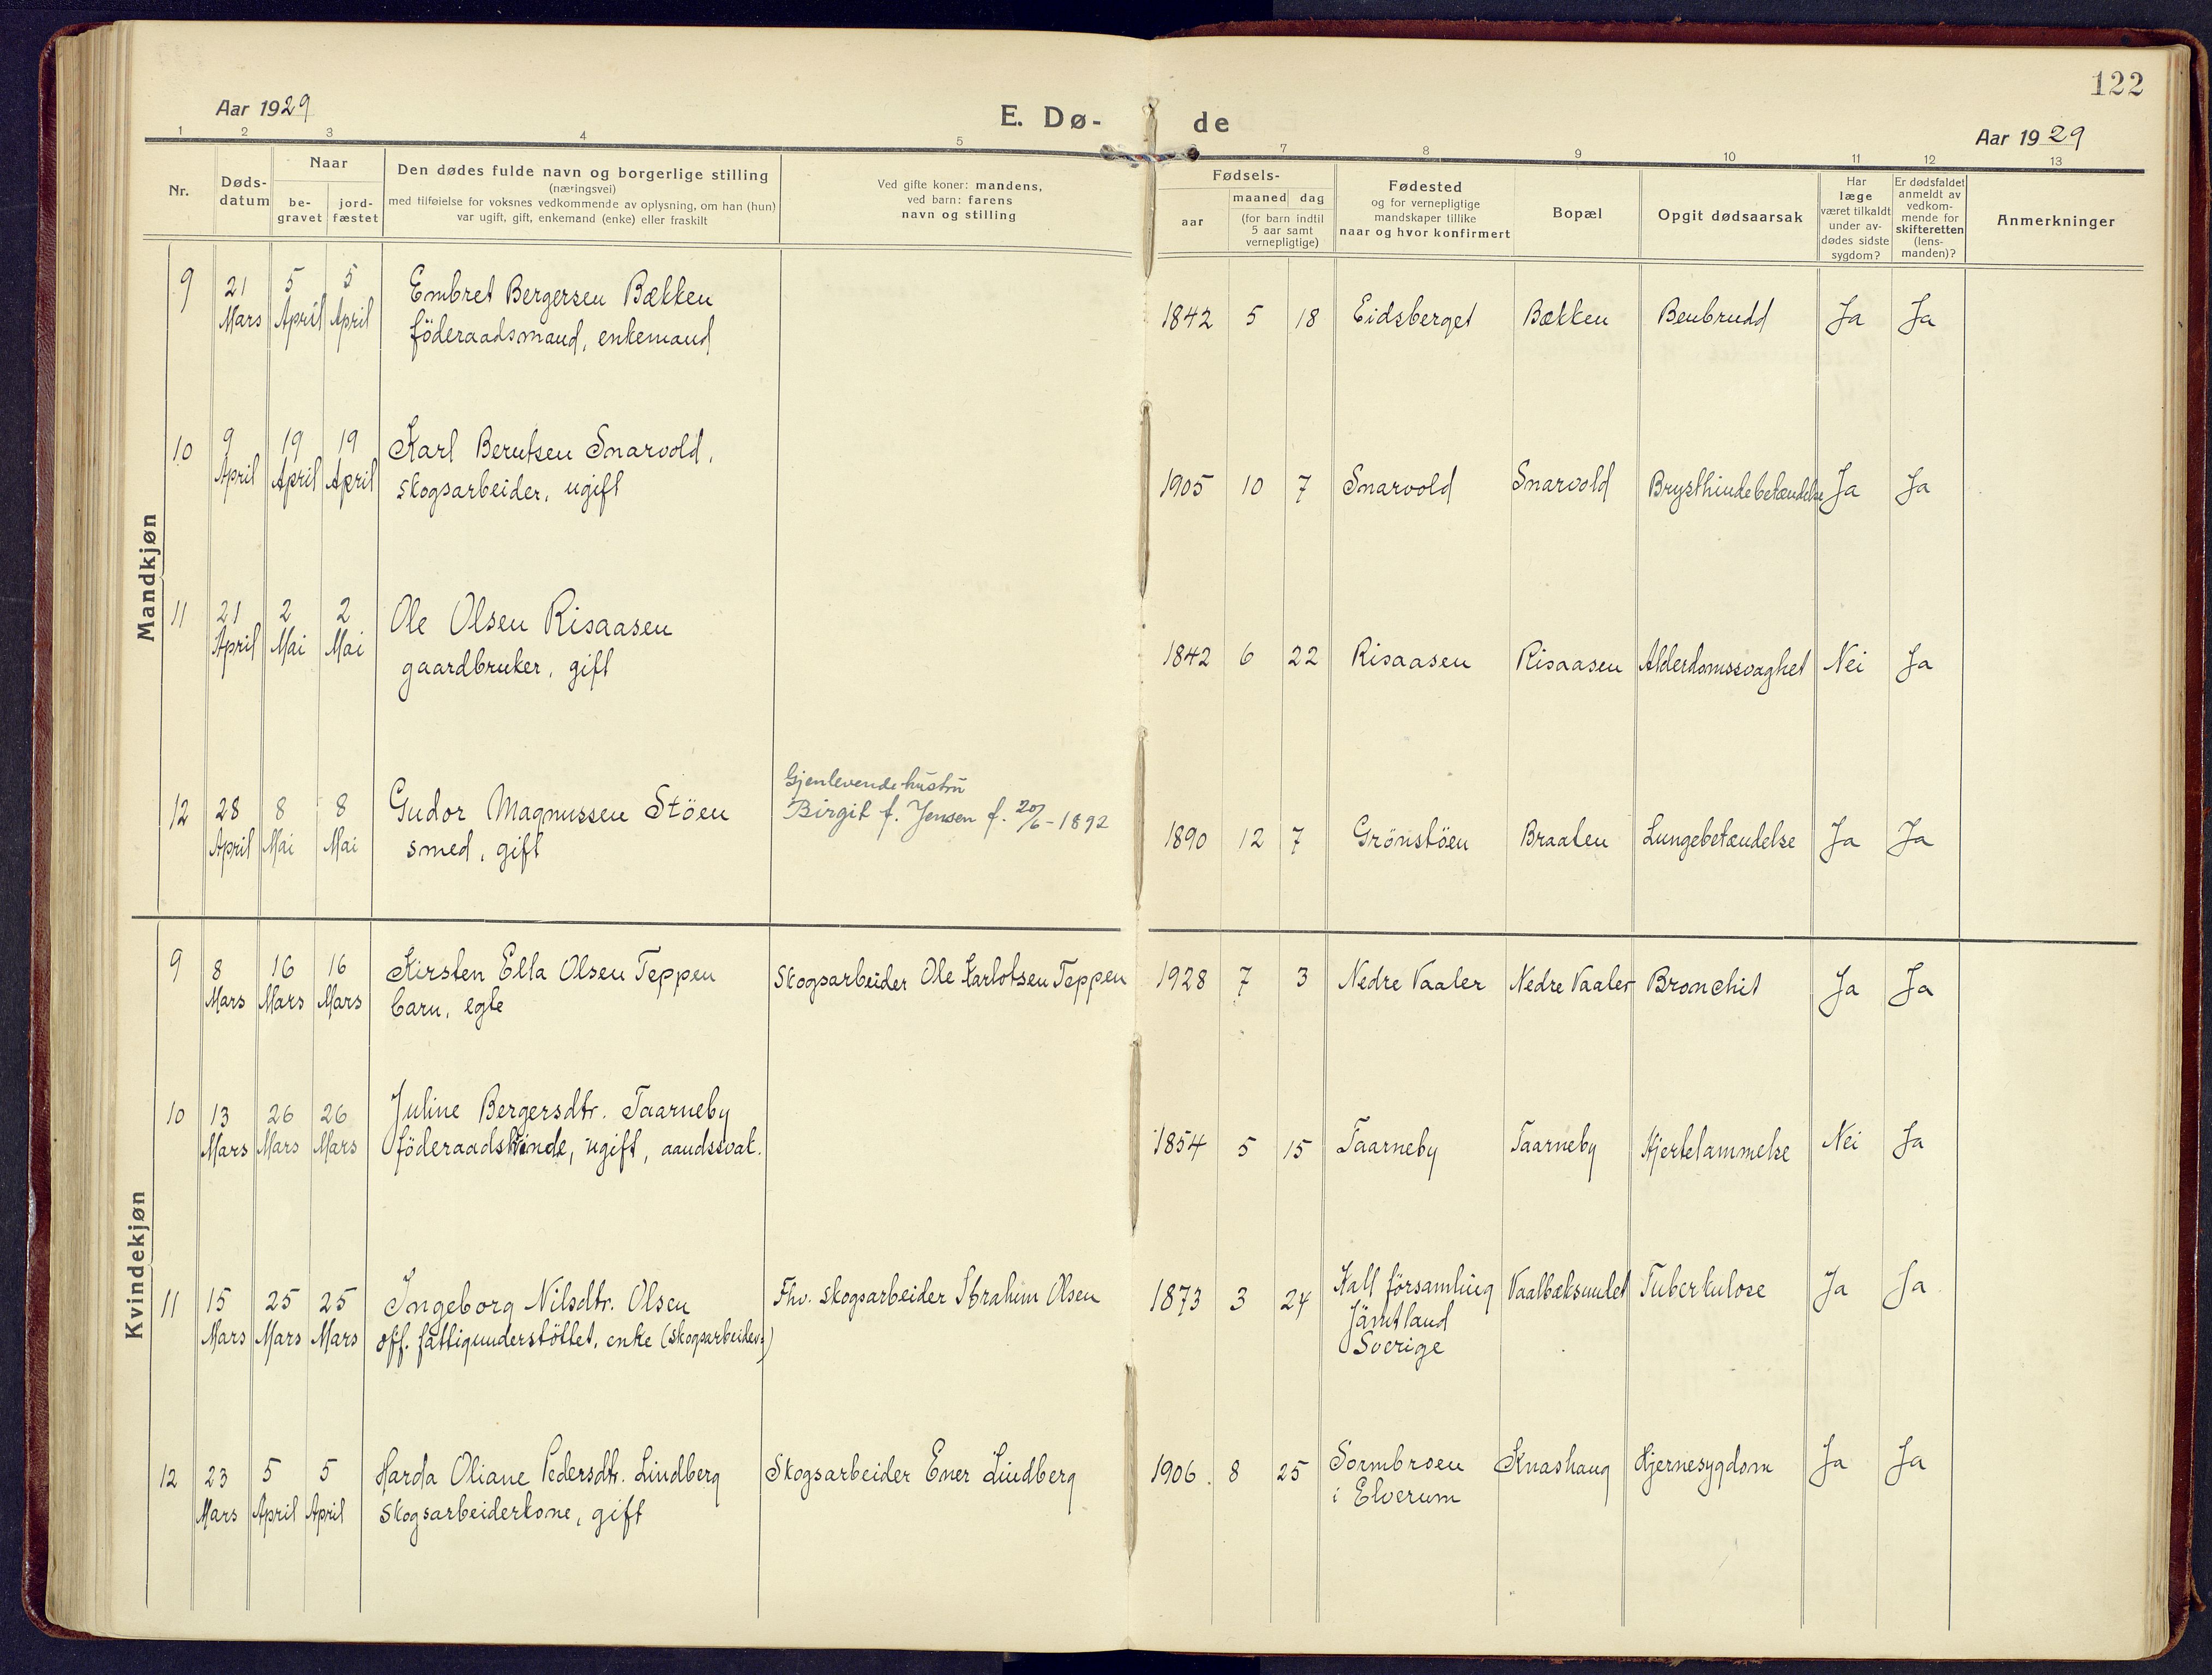 122
Aar 1929
E. Dø-
de
Aar 1929
1 2 3 4 5 7 8 9 10 11 12 13
Nr.
Døds-
datum
Naar
be-
gravet
jord-
fæstet
Den dødes fulde navn og borgerlige stilling
(næringsvei)
med tilføielse for voksnes vedkommende av oplysning, om han (hun)
var ugift, gift, enkemand (enke) eller fraskilt
Ved gifte koner: mandens,
ved barn: farens
navn og stilling
Fødsels-
aar
maaned dag
(for barn indtil
5 aar samt
vernepligtige)
Fødested
og for vernepligtige
mandskaper tillike
naar og hvor konfirmert
Bopæl
Opgit dødsaarsak
Har
læge
været tilkaldt
under av-
dødes sidste
sygdom?
Er dødsfaldet
anmeldt av
vedkom-
mende for
skifteretten
(lens-
manden)?
Anmerkninger
Mandkjøn
9 21 5 5 Embret Bergersen Bækken
Mars April April föderaadsmand, enkemand
1842 5 18 Eidsberget Bækken Benbrudd Ja Ja
10 9 19 19 Karl Berntsen Snarvold,
April April April skogsarbeider, ugift
1905 10 7 Snarvold Snarvold Brysthindebetændelse Ja Ja
11 21 2 2 Ole Olsen Risaasen
April Mai Mai gaardbruker, gift
1842 6 22 Risaasen Risaasen Alderdomssvaghet Nei Ja
Gjenlevende hustru
12 28 8 8 Gudor Magnussen Stöen Birgit f. Jensen f. 20/6-1892
April Mai Mai smed, gift
1890 12 7 Grönstöen Braaten Lungebetændelse Ja Ja
Kvindekjøn
9 8 16 16 Kirsten Ella Olsen Teppen Skogsarbeider Ole Karlotsen Teppen 1928 7 3 Nedre Vaaler Nedre Vaaler Bronchit Ja Ja
Mars Mars Mars barn, egte
10 13 26 26 Juline Bergersdtr. Taarneby
Mars Mars Mars föderaadskvinde, ugift, aandssvak.
1854 5 15 Taarneby Taarneby Hjertelammelse Nei Ja
11 15 25 25 Ingeborg Nilsdtr. Olsen Fhv. skogsarbeider Abrahim Olsen 1873 3 24 Kall församling Vaalbæksundet Tuberkulose Ja Ja
Mars Mars Mars off. fattigunderstöttet, enke (skogsarbeider) Jämtland
Sverige
12 23 5 5 Harda Oliane Pedersdtr. Lindberg Skogsarbeider Ener Lindberg 1906. 8 25 Sormbroen Knashaug Hjernesygdom Ja Ja
Mars April April skogsarbeiderkone, gift i Elverum